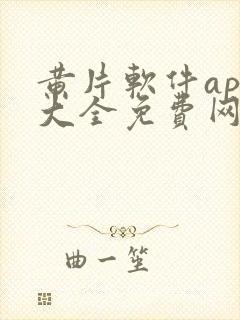 黄片軟件ap
大全免費网
曲一笙